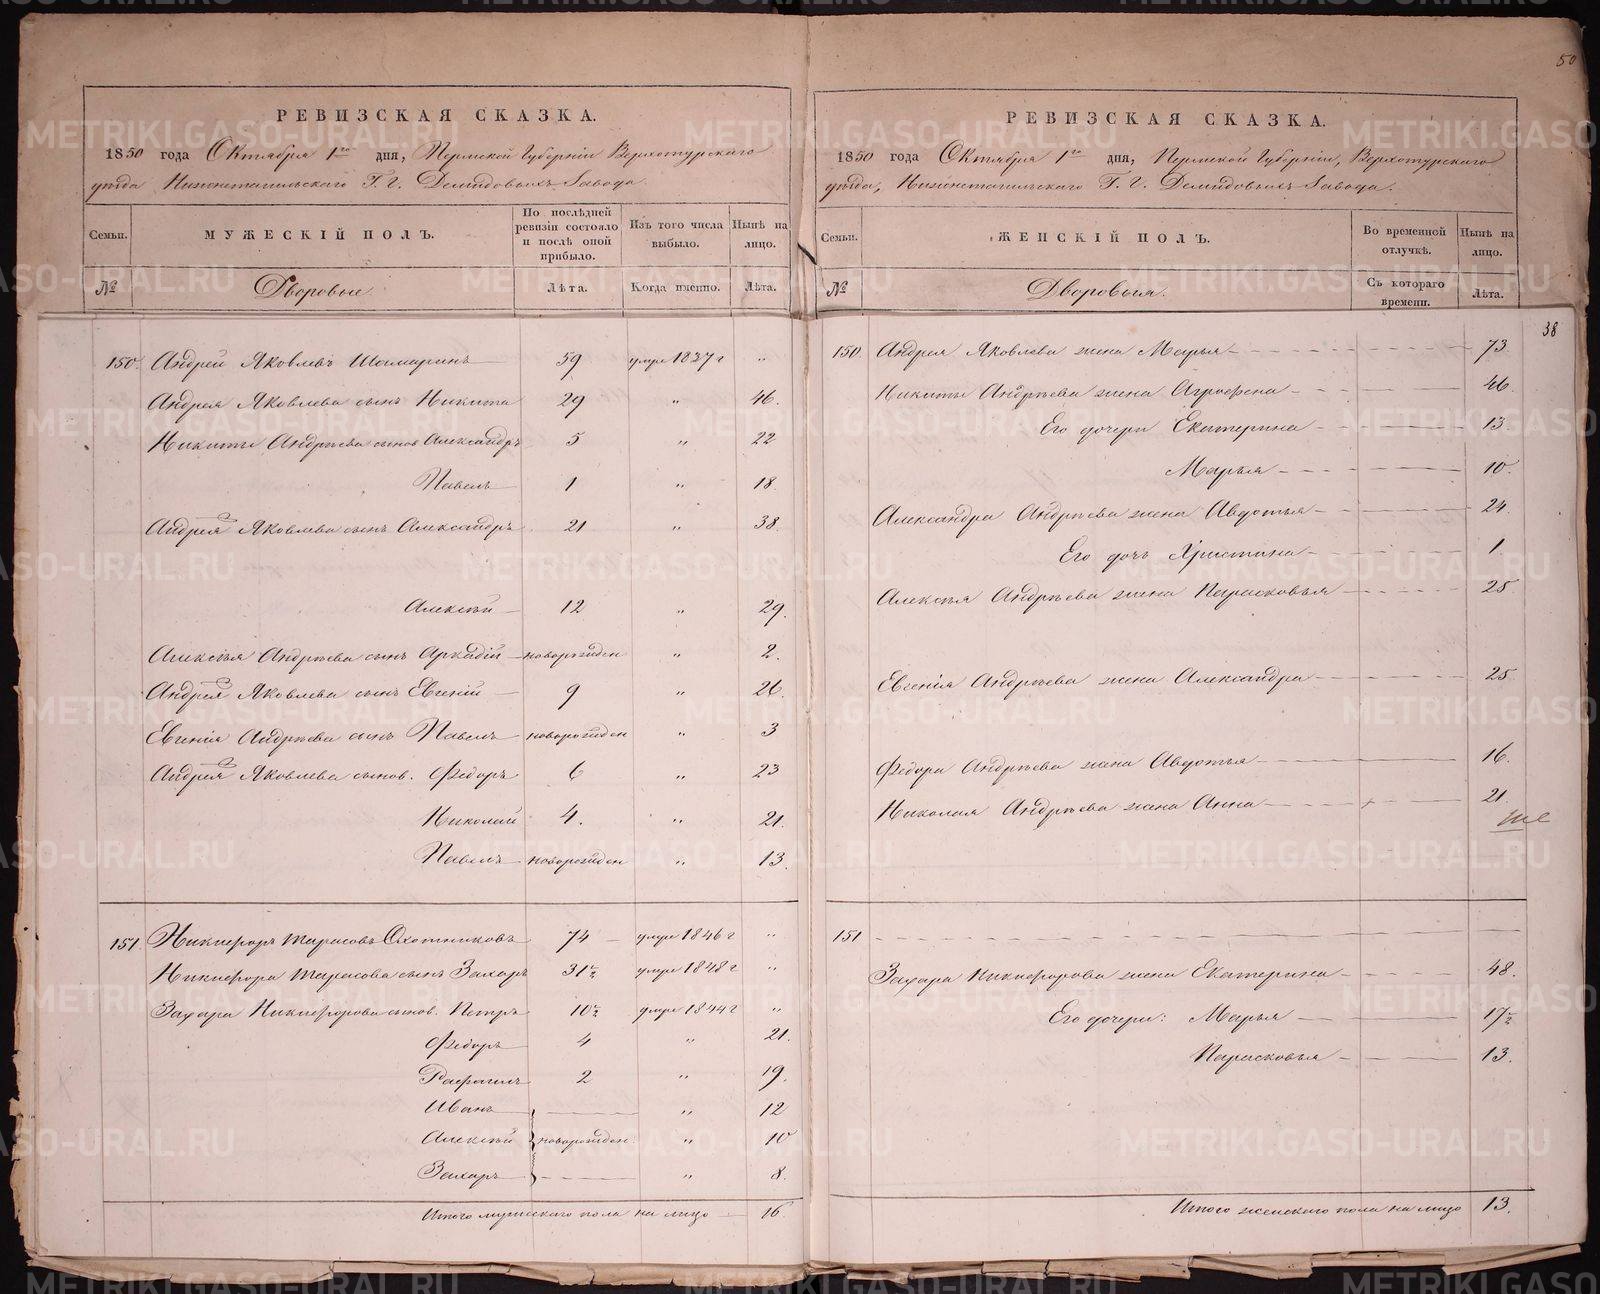 50
РЕВИЗСКАЯ СКАЗКА.
1850 года Октября 1го дня, Пермской Губернiи Верхотурскаго
уѣзда Нижнетагильскаго Г. Г. Демидовыхъ Завода.
Семьи. МУЖЕСКIЙ ПОЛЪ. По послѣдней ревизiи состояло и послѣ оной прибыло. Изъ того числа выбыло. Нынѣ на лицо.
№ Дворовые. Лѣта. Когда именно. Лѣта.
150. Андрей Яковлевъ 59 умре 1837 г "
Андрея Яковлева сынъ Никита 29 " 46.
Никиты Андрѣева сынов Александръ 5 " 22
Павелъ 1 " 18.
Андрея Яковлева сынъ Александръ 21 " 38.
Алексѣй 12 " 29.
Алексѣя Андрѣева сынъ Аркадiй новорожден " 2.
Андрея Яковлева сынъ Евгенiй 9 " 26.
Евгенiя Андрѣева сынъ Павелъ новорожден " 3
Андрея Яковлева сынов. Федоръ 6 " 23
Николай 4. " 21.
Павелъ новорожден " 13.
151. Никифоръ Тарасовъ Охотниковъ 74 умре 1846 г "
Никифора Тарасова сынъ Захаръ 31½ умре 1848 г "
Захара Никифорова сынов. Петръ 10½ умре 1844 г "
Федоръ 4 " 21.
Рафаилъ 2 " 19.
Иванъ " 12
Алексѣй новорожден. " 10
Захаръ " 8.
Итого мужескаго пола на лицо 16.
РЕВИЗСКАЯ СКАЗКА.
1850 года Октября 1го дня, Пермской Губернiи, Верхотурскаго
уѣзда, Нижнетагильскаго Г. Г. Демидовыхъ Завода.
Семьи. ЖЕНСКIЙ ПОЛЪ. Во временной отлучкѣ. Нынѣ на лицо.
№ Дворовыя. Съ котораго времени. Лѣта.
38
150. Андрея Яковлева жена Марья 73
Никиты Андрѣева жена Агрофена 46.
Его дочери Екатерина 13.
Марья 10.
Александра Андрѣева жена Авдотья 24.
Его дочь Христина 1.
Алексѣя Андрѣева жена Парасковья 25.
Евгенiя Андрѣева жена Александра 25.
Федора Андрѣева жена Авдотья 16.
Николая Андрѣева жена Анна 21.
151
Захара Никифорова жена Екатерина 48.
Его дочери: Марья 17½
Парасковья 13.
Итого женскаго пола на лицо 13.
METRIKI.GASO-URAL.RU